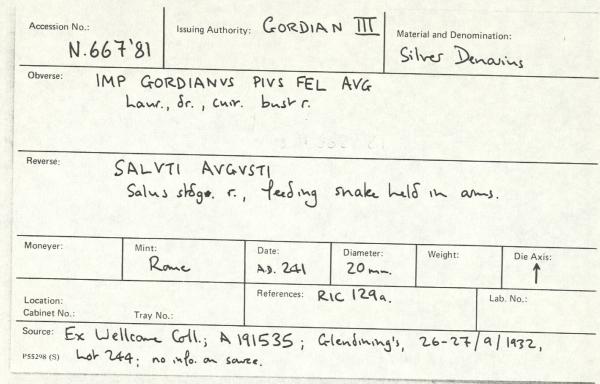 Accession No.: N.667'81
Issuing Authority: GORDIAN III
Material and Denomination: Silver Denarius
Obverse: IMP GORDIANVS PIVS FEL AVG
Laur., dr., cuir. bust r.
Reverse: SALVTI AVGVSTI
Salus stdg. r., feeding snake held in arms.
Moneyer:
Mint: Rome
Date: A.D. 241
Diameter: 20 mm.
Weight:
Die Axis: ↑
Location:
Cabinet No.: Tray No.:
References: RIC 129a.
Lab. No.:
Source: Ex Wellcome Coll.; A 191535; Glendining's, 26-27/9/1932,
P55298 (S) Lot 244; no info. on source.